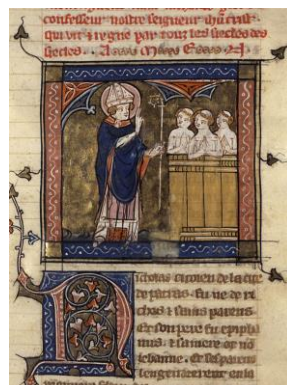 confesseur nostre seigneur
qui vit & regne par tout les siecles des
siecles.
Nicholas citoien de la cite
de patras fu ne de ri
ches & sains parens
Et son pere fu epipha
nius & sa mere ot no
iehanne. Et ses parens
lengendrerent en la